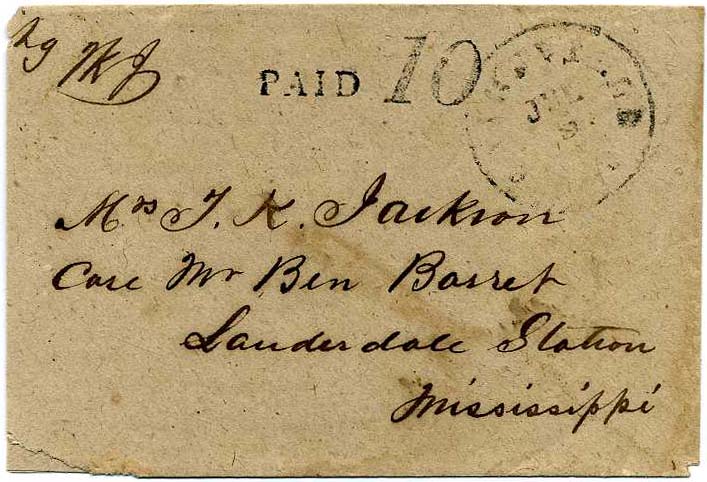 PAID 10
JUL
Mrs T. K. Jackson
Care Mr Ben Barret
Lauderdale Station
Mississippi